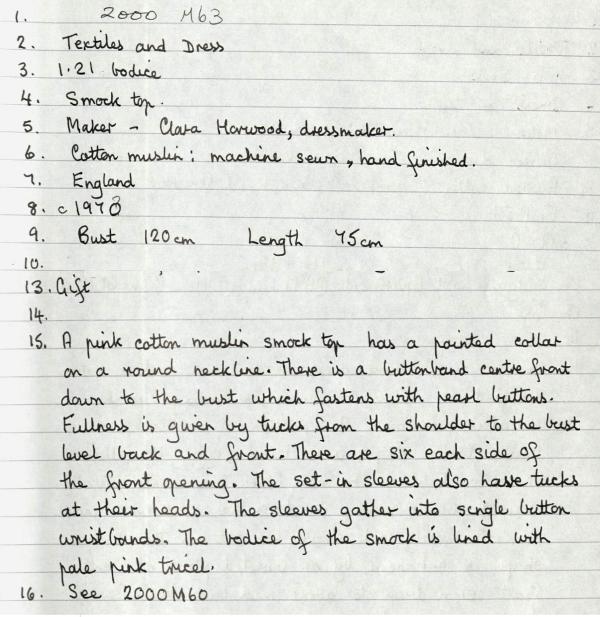 1. 2000 M63
2. Textiles and Dress
3. 1.21 bodice
4. Smock top.
5. Maker - Clara Horwood, dressmaker.
6. Cotton muslin: machine sewn, hand finished.
7. England
8. c 1970
9. Bust 120cm Length 75cm
10.
13. Gift
14.
15. A pink cotton muslin smock top has a pointed collar
on a round neckline. There is a buttonband centre front
down to the bust which fastens with pearl buttons.
Fullness is given by tucks from the shoulder to the bust
level back and front. There are six each side of
the front opening. The set-in sleeves also have tucks
at their heads. The sleeves gather into single button
wristbands. The bodice of the smock is lined with
pale pink tricel.
16. See 2000M60